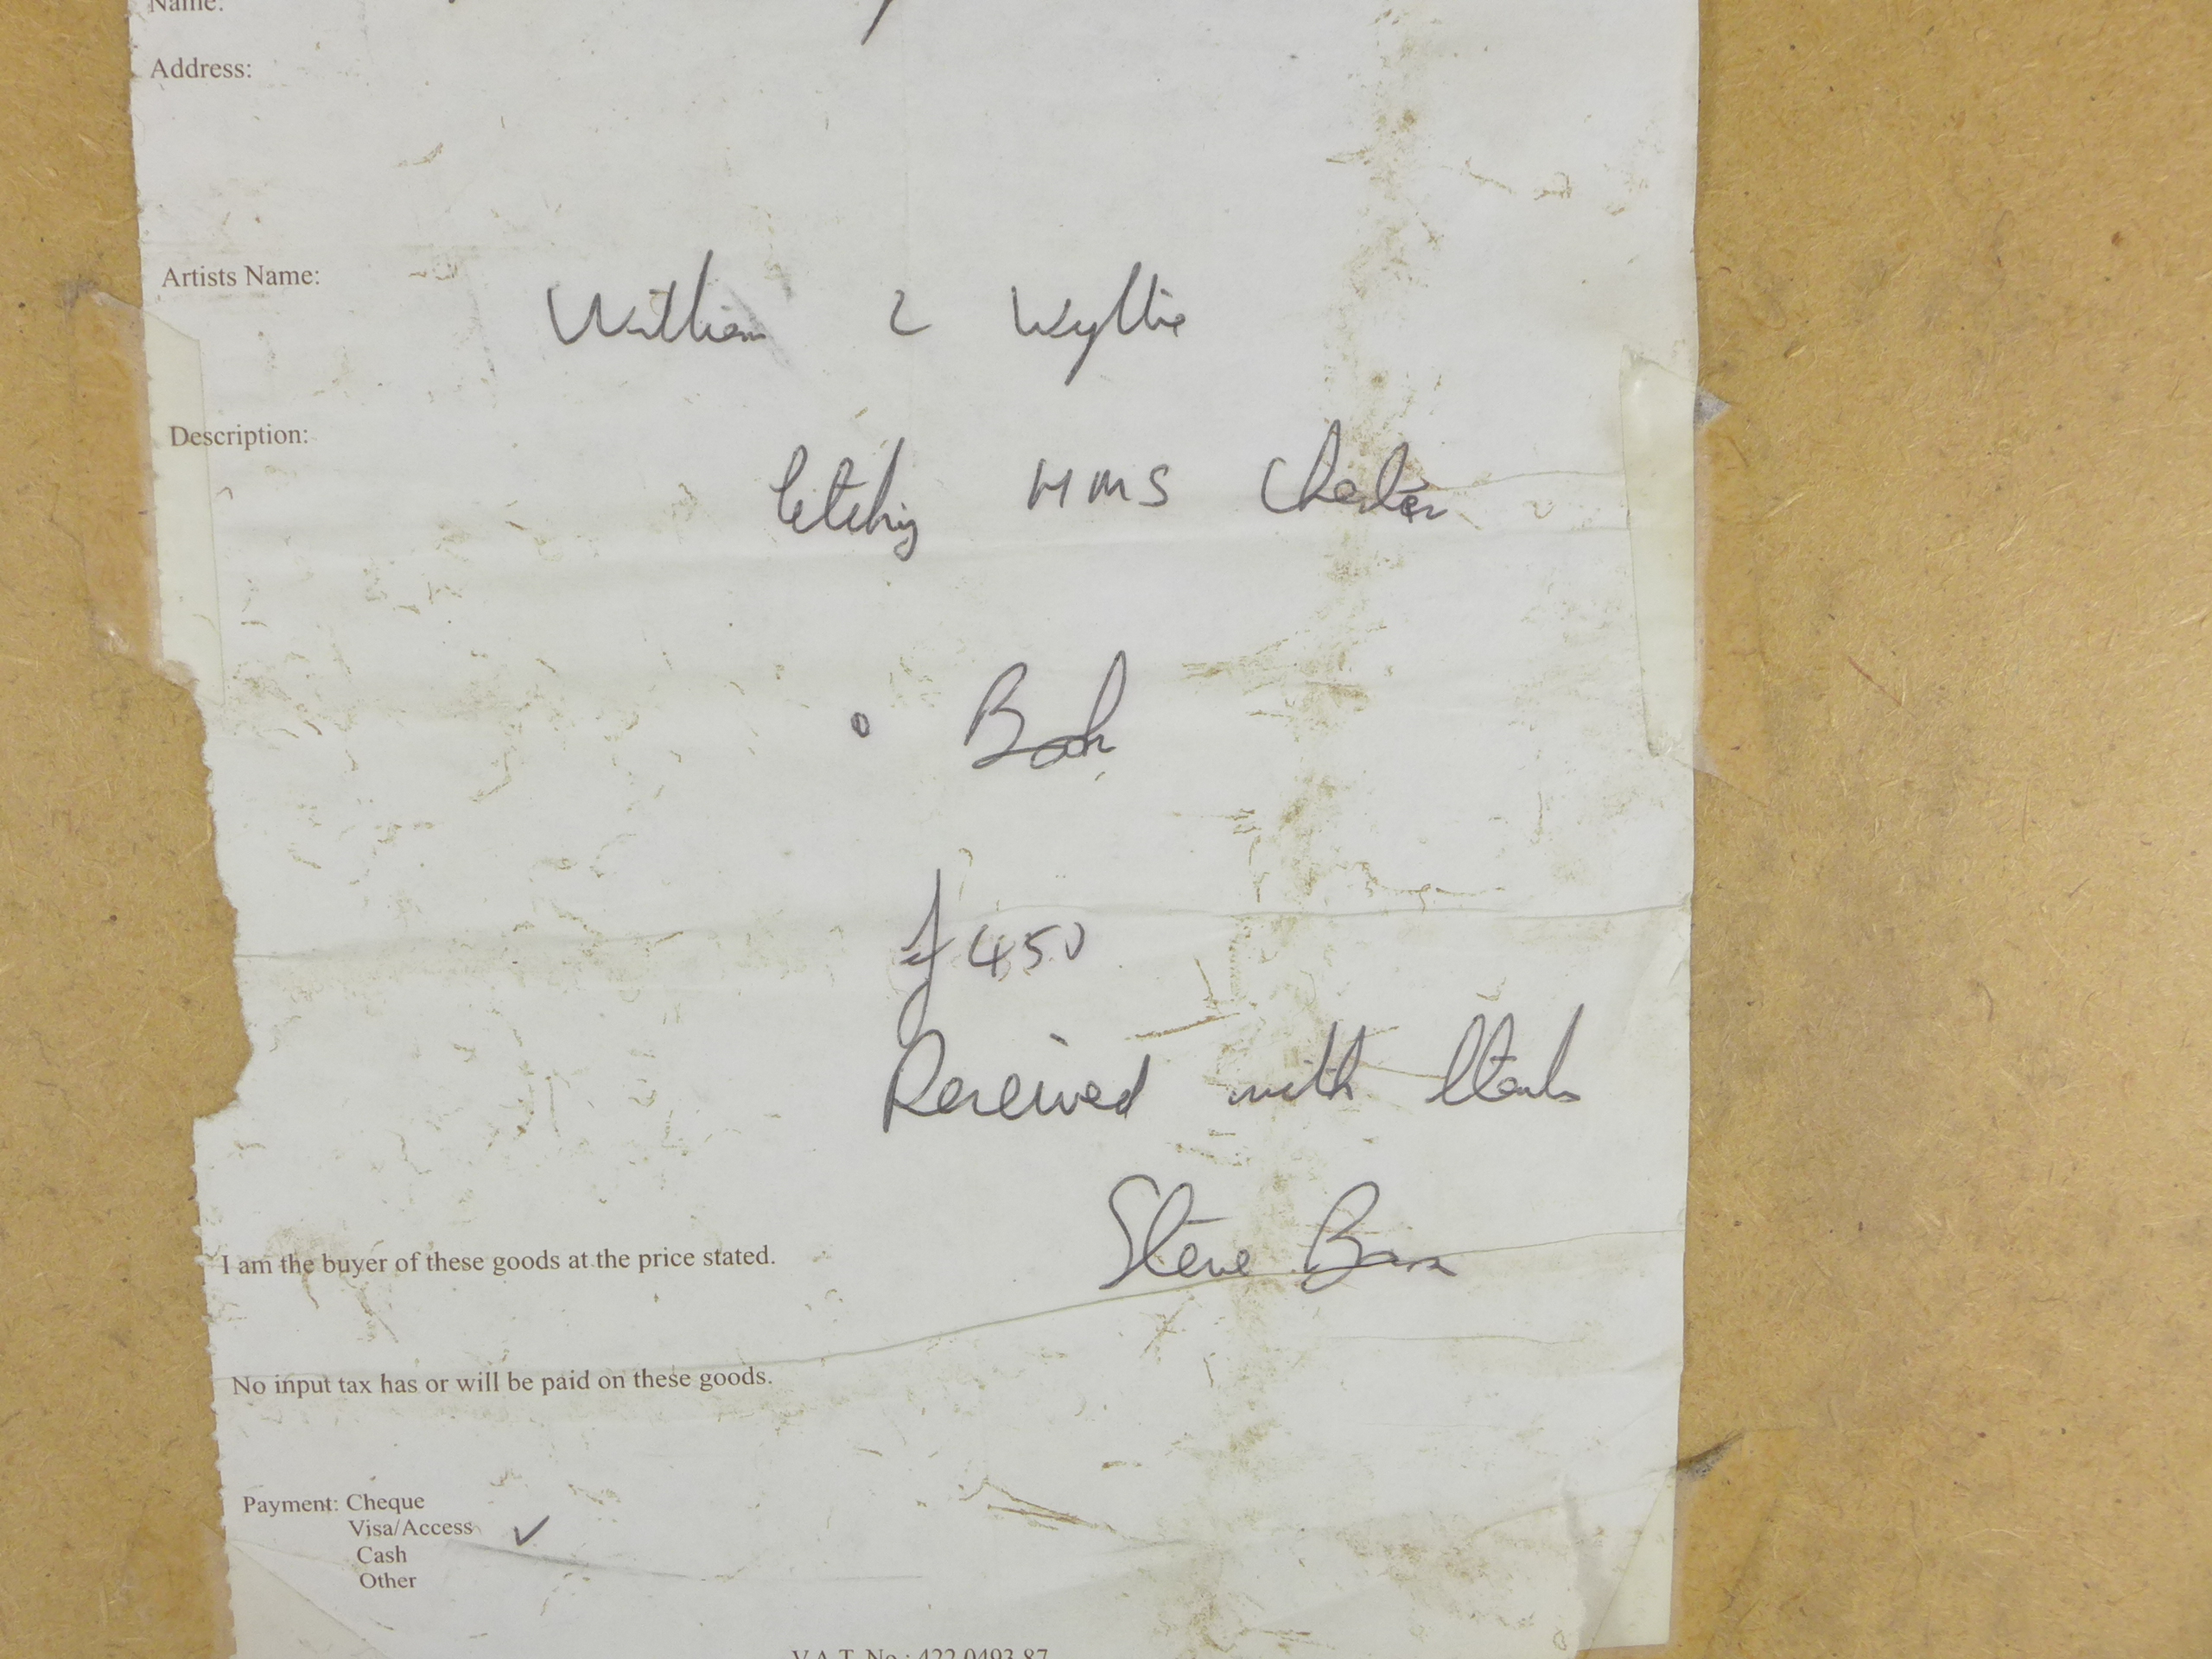 Name:
Address:
Artists Name: William L Wyllie
Description:
Etching HMS Chester
£450
Received with thanks
Steve
I am the buyer of these goods at the price stated.
No input tax has or will be paid on these goods.
Payment: Cheque
Visa/Access ✓
Cash
Other
V.A.T. No.: 422 0493 87